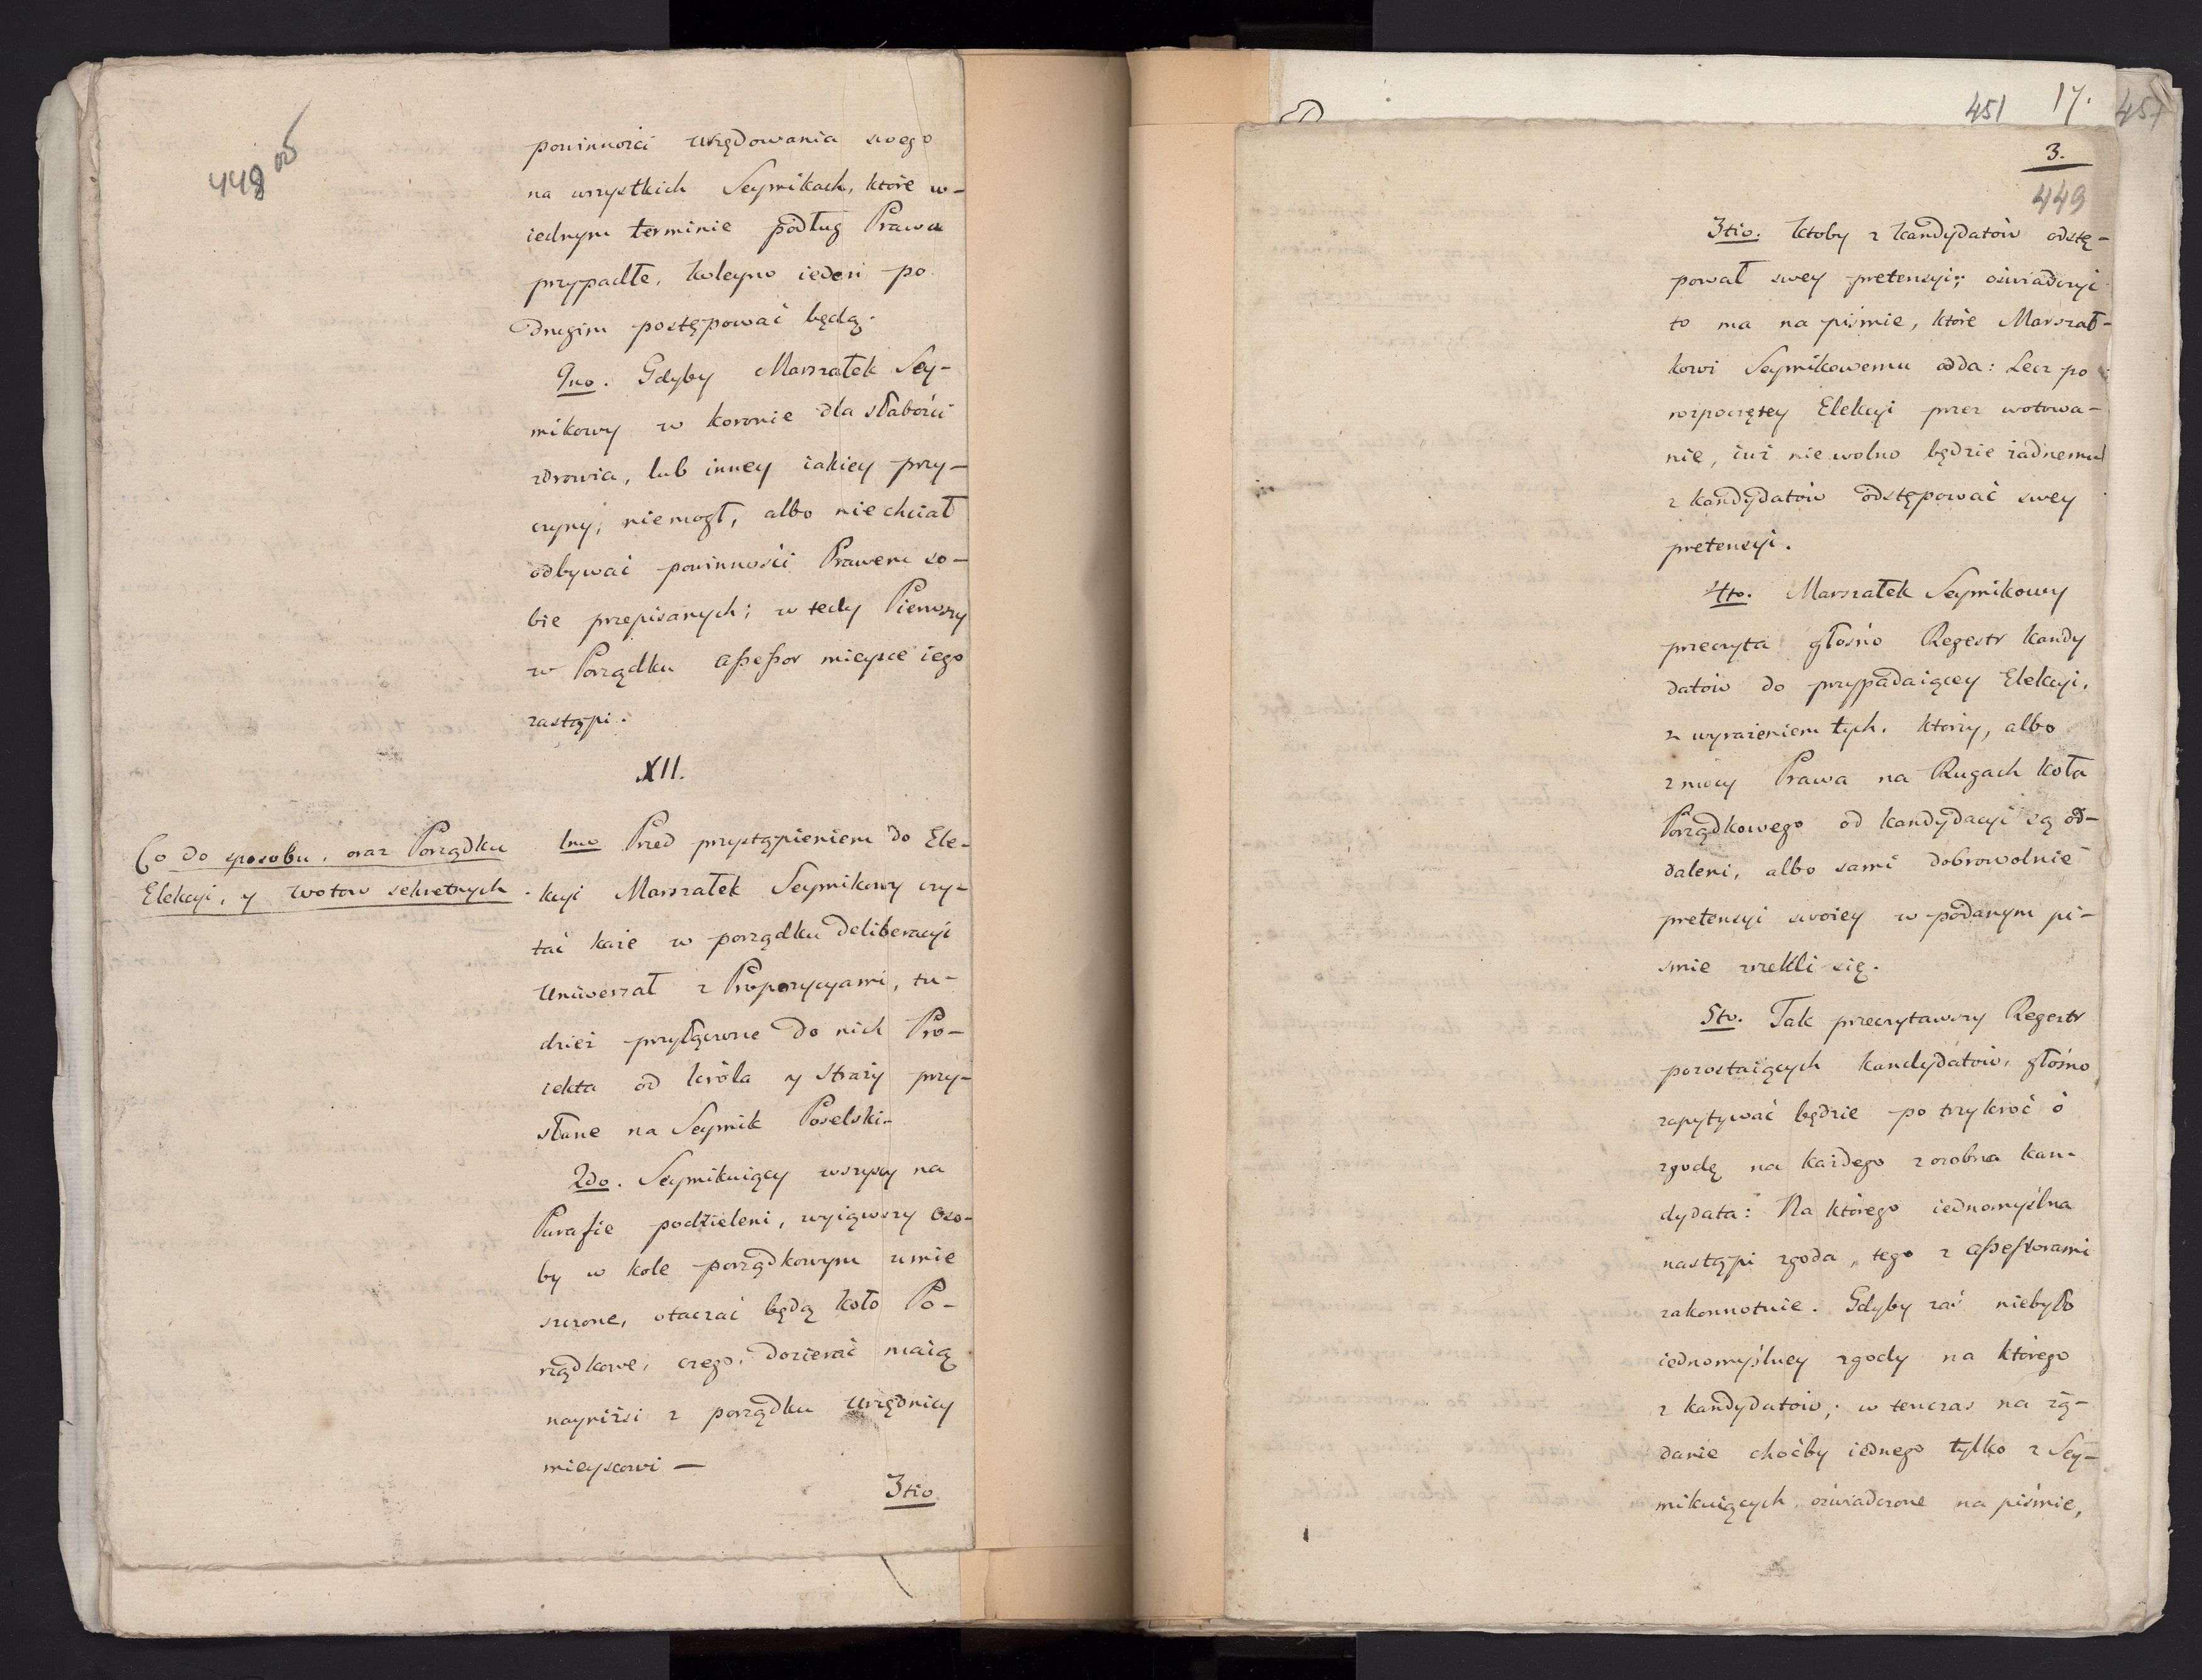 448 ob
powinności urzędowania swego
na wszystkich Seymikach, które w-
iednym terminie podług Prawa
przypadłe, koleyno ieden po
drugim postępować będą.
9no. Gdyby Marszałek Sey-
mikowy w koronie dla słabości
zdrowia, lub inney iakiey przy-
czyny, niemogł, albo niechciał
odbywać powinności Prawem so-
bie przepisanych; w tedy Pierwszy
w Porządku assessor mieysce iego
zastąpi.
XII.
Co do sposobu, oraz Porządku
Elekcyi, y wotow sekretnych.
1mo Przed przystąpieniem do Ele-
kcyi Marszałek Seymikowy czy-
tać każe w porządku deliberacyi
Uniwerzał z Propozycyami, tu-
dzież przyłączone do nich Pro-
iekta od króla y Straży przy-
słane na Seymik Poselski.
2do. Seymikuiący wszyscy na
Parafie podzieleni, wyiąwszy oso-
by w kole porządkowym umie
szczone, otaczać będą koło Po-
rządkowe, czego dozierać maią
nayniżsi z porządku urzędnicy
mieyscowi —
3tio
451 17. 451
3.
449
3tio. Ktoby z kandydatów odstę-
pował swey pretensyi; oświadczyć
to ma na piśmie, które Marszał-
kowi Seymikowemu odda: Lecz po
rozpoczętey Elekcyi przez wotowa-
nie, iuż niewolno będzie żadnemu
z kandydatów odstępować swey
pretensyi.
4to. Marszałek Seymikowy
przeczyta głośno Regestr kandy
datów do przypadaiącey Elekcyi,
z wyrażeniem tych, którzy, albo
z mocy Prawa na Rugach koła
Porządkowego od kandydacyi są od-
daleni, albo sami dobrowolnie
pretensyi swoiey w podanym pi-
śmie zrzekli się.
5to. Tak przeczytawszy Regestr
pozostaiących kandydatów, głośno
zapytywać będzie po trzykroć o
zgodę na każdego z osobna kan-
dydata: Na którego iednomyślna
nastąpi zgoda, tego z assessorami
zakonnotuie. Gdyby zaś niebyło
iednomyślney zgody na którego
z kandydatów; w tenczas na żą-
danie choćby iednego tylko z Sey-
mikuiących, oświadczone na piśmie,